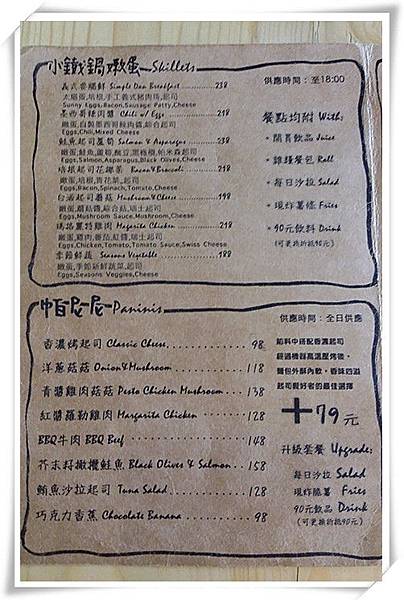 小鐵鍋嫩蛋 Skillets
供應時間：至18:00
義式麥糊鮮 Simple Dan Breakfast 238
太陽蛋,培根,手工義式豬肉珠,起司
Sunny Eggs,Bacon,Sausage Patty,Cheese
墨西哥辣肉醬 Chili w/ Eggs 218
嫩蛋,自製墨西哥辣肉醬,綜合起司
Eggs,Chili,Mixed Cheese
鮭魚起司蘆筍 Salmon & Asparagus 238
Eggs,Salmon,Asparagus,Black Olives,Cheese
培根起司花椰菜 Bacon&Broccoli 218
嫩蛋,培根,青花菜,起司
Eggs,Bacon,Spinach,Tomato,Cheese
白酒起司蘑菇 Mushroom&Cheese 198
嫩蛋,蘑菇醬,綜合菇,瑞士起司
Eggs,Mushroom Sauce,Mushroom,Cheese
瑪格麗特雞肉 Magarita Chicken 218
嫩蛋,雞肉,番茄,紅醬,瑞士起司
Eggs,Chicken,Tomato,Tomato Sauce,Swiss Cheese
季節鮮蔬 Seasons Vegetable 188
嫩蛋,季節新鮮蔬菜,起司
Eggs,Seasons Veggies,Cheese
餐點均附 With:
• 開胃飲品 Juice
• 雜糧餐包 Roll
• 每日沙拉 Salad
• 現炸薯條 Fries
• 90元飲料 Drink
(可更換折抵90元)
帕尼尼 Paninis
供應時間：全日供應
香濃烤起司 Classic Cheese 98
洋蔥菇菇 Onion&Mushroom 118
青醬雞肉菇菇 Pesto Chicken Mushroom 138
紅醬羅勒雞肉 Margarita Chicken 128
BBQ牛肉 BBQ Beef 148
芥末籽橄欖鮭魚 Black Olives & Salmon 158
鮪魚沙拉起司 Tuna Salad 128
巧克力香蕉 Chocolate Banana 98
餡料中搭配香濃起司
經過機器高溫壓烤後，
麵包外酥內軟，香味四溢
起司餐好者的最佳選擇
+79元
升級套餐 Upgrade:
每日沙拉 Salad
現炸脆薯 Fries
90元飲品 Drink
(可更換折抵90元)